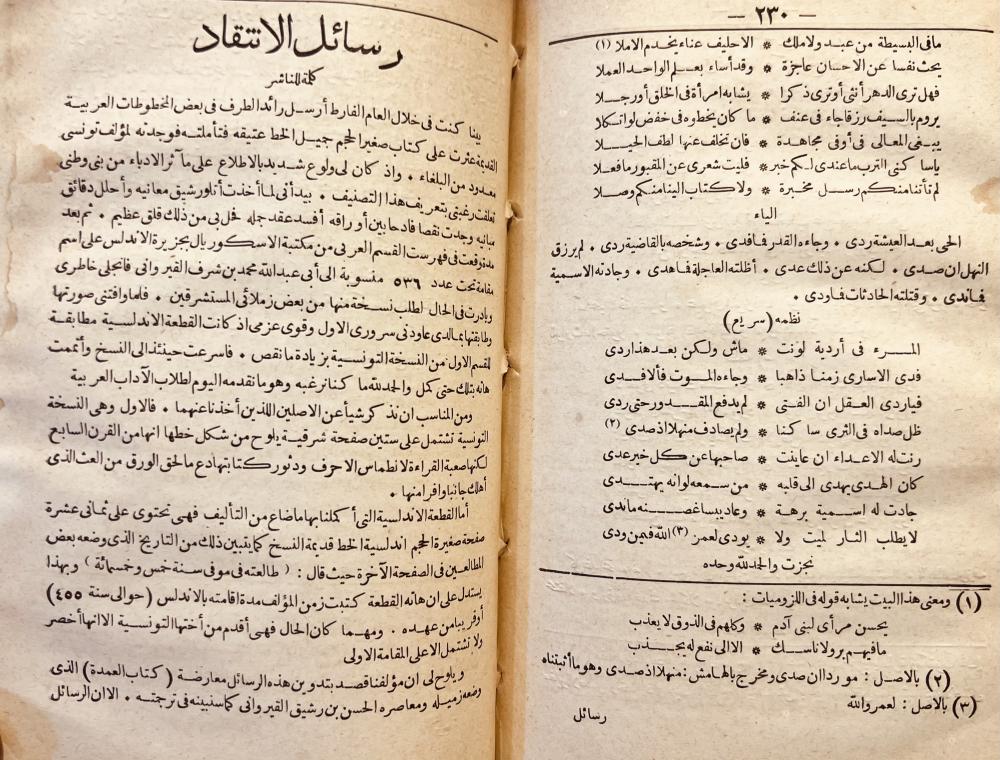 — ٢٣٠ —
مافى البسيطة من عبد ولا ملك * الا حليف عناء يخدم الاملا (١)
يحث نفسا عن الاحسان عاجزة * وقد أساء بعلم الواحد العملا
فهل ترى الدهر أنثى أو ترى ذكرا * يشابه امرأة فى الخلق أو رجلا
يروم بالسيف رزقا جاء فى عنف * ما كان يخطوه فى خفض لو اتكلا
يبغى المعالى فى أوفى مجاهدة * فان تخلف عنها لطف الحيلا
ياسا كنى الترب ماعندى لكم خبر * فليت شعرى عن المقبور مافعلا
لم تأتنا منكم رسل مخبرة * ولا كتاب الينا منكم وصلا
الياء
الحى بعد العيشة ردى . وجاءه القدر فما فدى . وشخصه بالقاضية ردى . لم يرزق
النهل ان صدى . لكنه عن ذلك عدى . أظلته العاجلة فما هدى . وجادته الاسمية
فما ندى . وقتلته الحادثات فما ودى .
نظمه (سريع)
المرء فى أردية لونت * ماش ولكن بعد هذا ردى
فدى الاسارى زمنا ذاهبا * وجاءه الموت فألا فدى
فياردى العقل ان الفتى * لم يدفع المقدور حتى ردى
ظل صداه فى الثرى سا كنا * ولم يصادف منهلا اذ صدى (٢)
رنت له الاعداء ان عاينت * صاحبها عن كل خير عدى
كان الهدى يهدى الى قلبه * من سمعه لو انه يهتدى
جادت له اسمية برهة * وعاد يبسا غصنه ماندى
لا يطلب الثار لميت ولا * يودى لعمر (٣) الله فيمن ودى
نجزت والحمد لله وحده
(١) ومعنى هذا البيت يشابه قوله فى اللزوميات :
يحسن مرأى لبنى آدم * وكلهم فى الذوق لا يعذب
مافيهم بر ولا ناسك * الا الى نفع له يجذب
(٢) بالاصل : مورد ان صدى ومخرج بالهامش : منهلا اذ صدى وهو ما أثبتناه
(٣) بالاصل : لعمر والله
رسائل
رسائل الانتقاد
كلمة للناشر
بينا كنت فى خلال العام الفارط أرسل رائد الطرف فى بعض المخطوطات العربية
القديمة عثرت على كتاب صغير الحجم جميل الخط عتيقه فتأملته فوجدته لمؤلف تونسى
معدود من البلغاء . واذ كان لى ولوع شديد بالاطلاع على مآثر الادباء من بنى وطنى
تعلقت رغبتى بتعريف هذا التصنيف . بيد أنى لما أخذت أتلو رشيق معانيه وأحلل دقائق
مبانيه وجدت نقصا فادحا بين أوراقه أفسد عقد جمله فحل بى من ذلك قلق عظيم . ثم بعد
مدة وقعت فى فهرست القسم العربى من مكتبة الاسكوريال بجزيرة الاندلس على اسم
مقامة تحت عدد ٥٣٦ منسوبة الى أبى عبد الله محمد بن شرف القيروانى فانجلى خاطرى
وبادرت فى الحال لطلب نسخة منها من بعض زملائى المستشرقين . فلما وافتنى صورتها
وطابقتها بما لدى عاودنى سرورى الاول وقوى عزمى اذ كانت القطعة الاندلسية مطابقة
للقسم الاول من النسخة التونسية بزيادة ما نقص . فاسرعت حينئذ الى النسخ وأتممت
هاته بتلك حتى كمل والحمد لله ما كنا نرغبه وهو ما نقدمه اليوم لطلاب الآداب العربية
ومن المناسب ان نذكر شيأ عن الاصلين اللذين أخذنا عنهما . فالاول وهى النسخة
التونسية تشتمل على ستين صفحة شرقية يلوح من شكل خطها انها من القرن السابع
لكنها صعبة القراءة لانطماس الاحرف ودثور كتابتها دع ما لحق الورق من العث الذى
أهلك جانبا وافرا منها .
أما القطعة الاندلسية التى أكملنا بها ما ضاع من التأليف فهى تحتوى على ثمانى عشرة
صفحة صغيرة الحجم اندلسية الخط قديمة النسخ كما يتبين ذلك من التاريخ الذى وضعه بعض
المطالعين فى الصفحة الآخرة حيث قال : ( طالعته فى موفى سنة خمس وخمسمائة ) وبهذا
يستدل على ان هاته القطعة كتبت زمن المؤلف مدة اقامته بالاندلس (حوالى سنة ٤٥٥)
أو قريبا من عهده . ومهما كان الحال فهى أقدم من أختها التونسية الا انها أخصر
ولا تشتمل الا على المقامة الاولى
ويلوح لى ان مؤلفنا قصد بتدوين هذه الرسائل معارضة (كتاب العمدة) الذى
وضعه زميله ومعاصره الحسن بن رشيق القيروانى كما سنبينه فى ترجمته . الا ان الرسائل